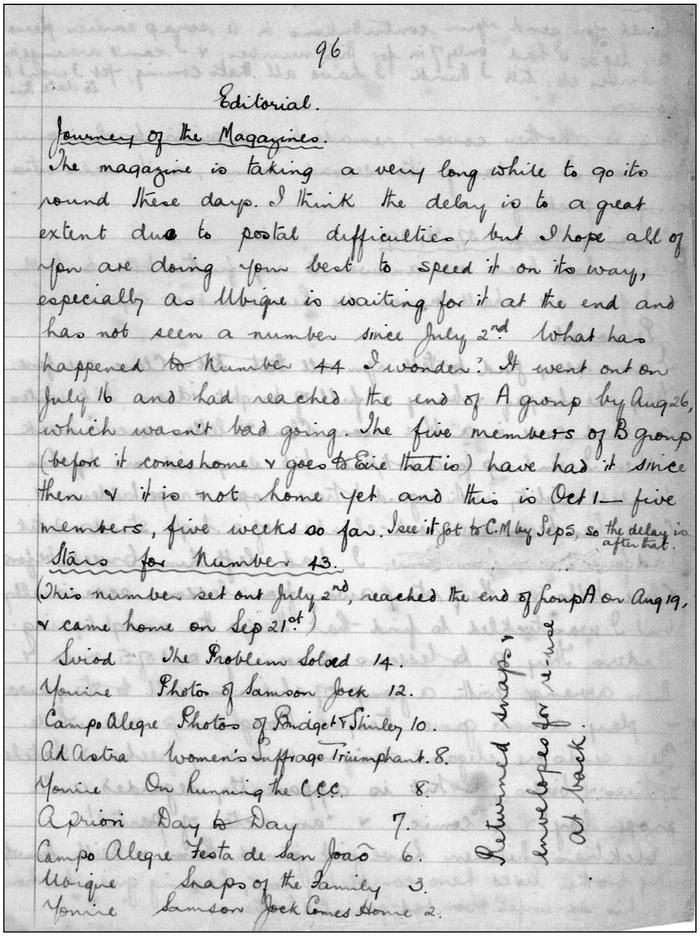 96
Editorial.
Journey of the Magazines.
The magazine is taking a very long while to go its
round these days. I think the delay is to a great
extent due to postal difficulties, but I hope all of
you are doing your best to speed it on its way,
especially as Ubique is waiting for it at the end and
has not seen a number since July 2nd. What has
happened to Number 44 I wonder? It went out on
July 16 and had reached the end of A group by Aug 26,
which wasn't bad going. The five members of B group
(before it comes home & goes to Eire that is) have had it since
then & it is not home yet and this is Oct 1 — five
members, five weeks so far. I see it got to C.M by Sep 5, so the delay is
after that.
Stars for Number 43.
(This number set out July 2nd, reached the end of Group A on Aug 19,
& came home on Sep 21st.)
Sirod The Problem Solved 14.
Yonire Photos of Samson Jock 12.
Campo Alegre Photos of Bridget & Shirley 10.
Ad Astra Women's Suffrage Triumphant. 8.
Yonire On Running the CCC. 8.
A priori Day to Day 7.
Campo Alegre Festa de San Joaõ 6.
Ubique Snaps of the Family 3.
Yonire Samson Jock Comes Home 2.
Returned snaps &
envelopes for re-use
at back.